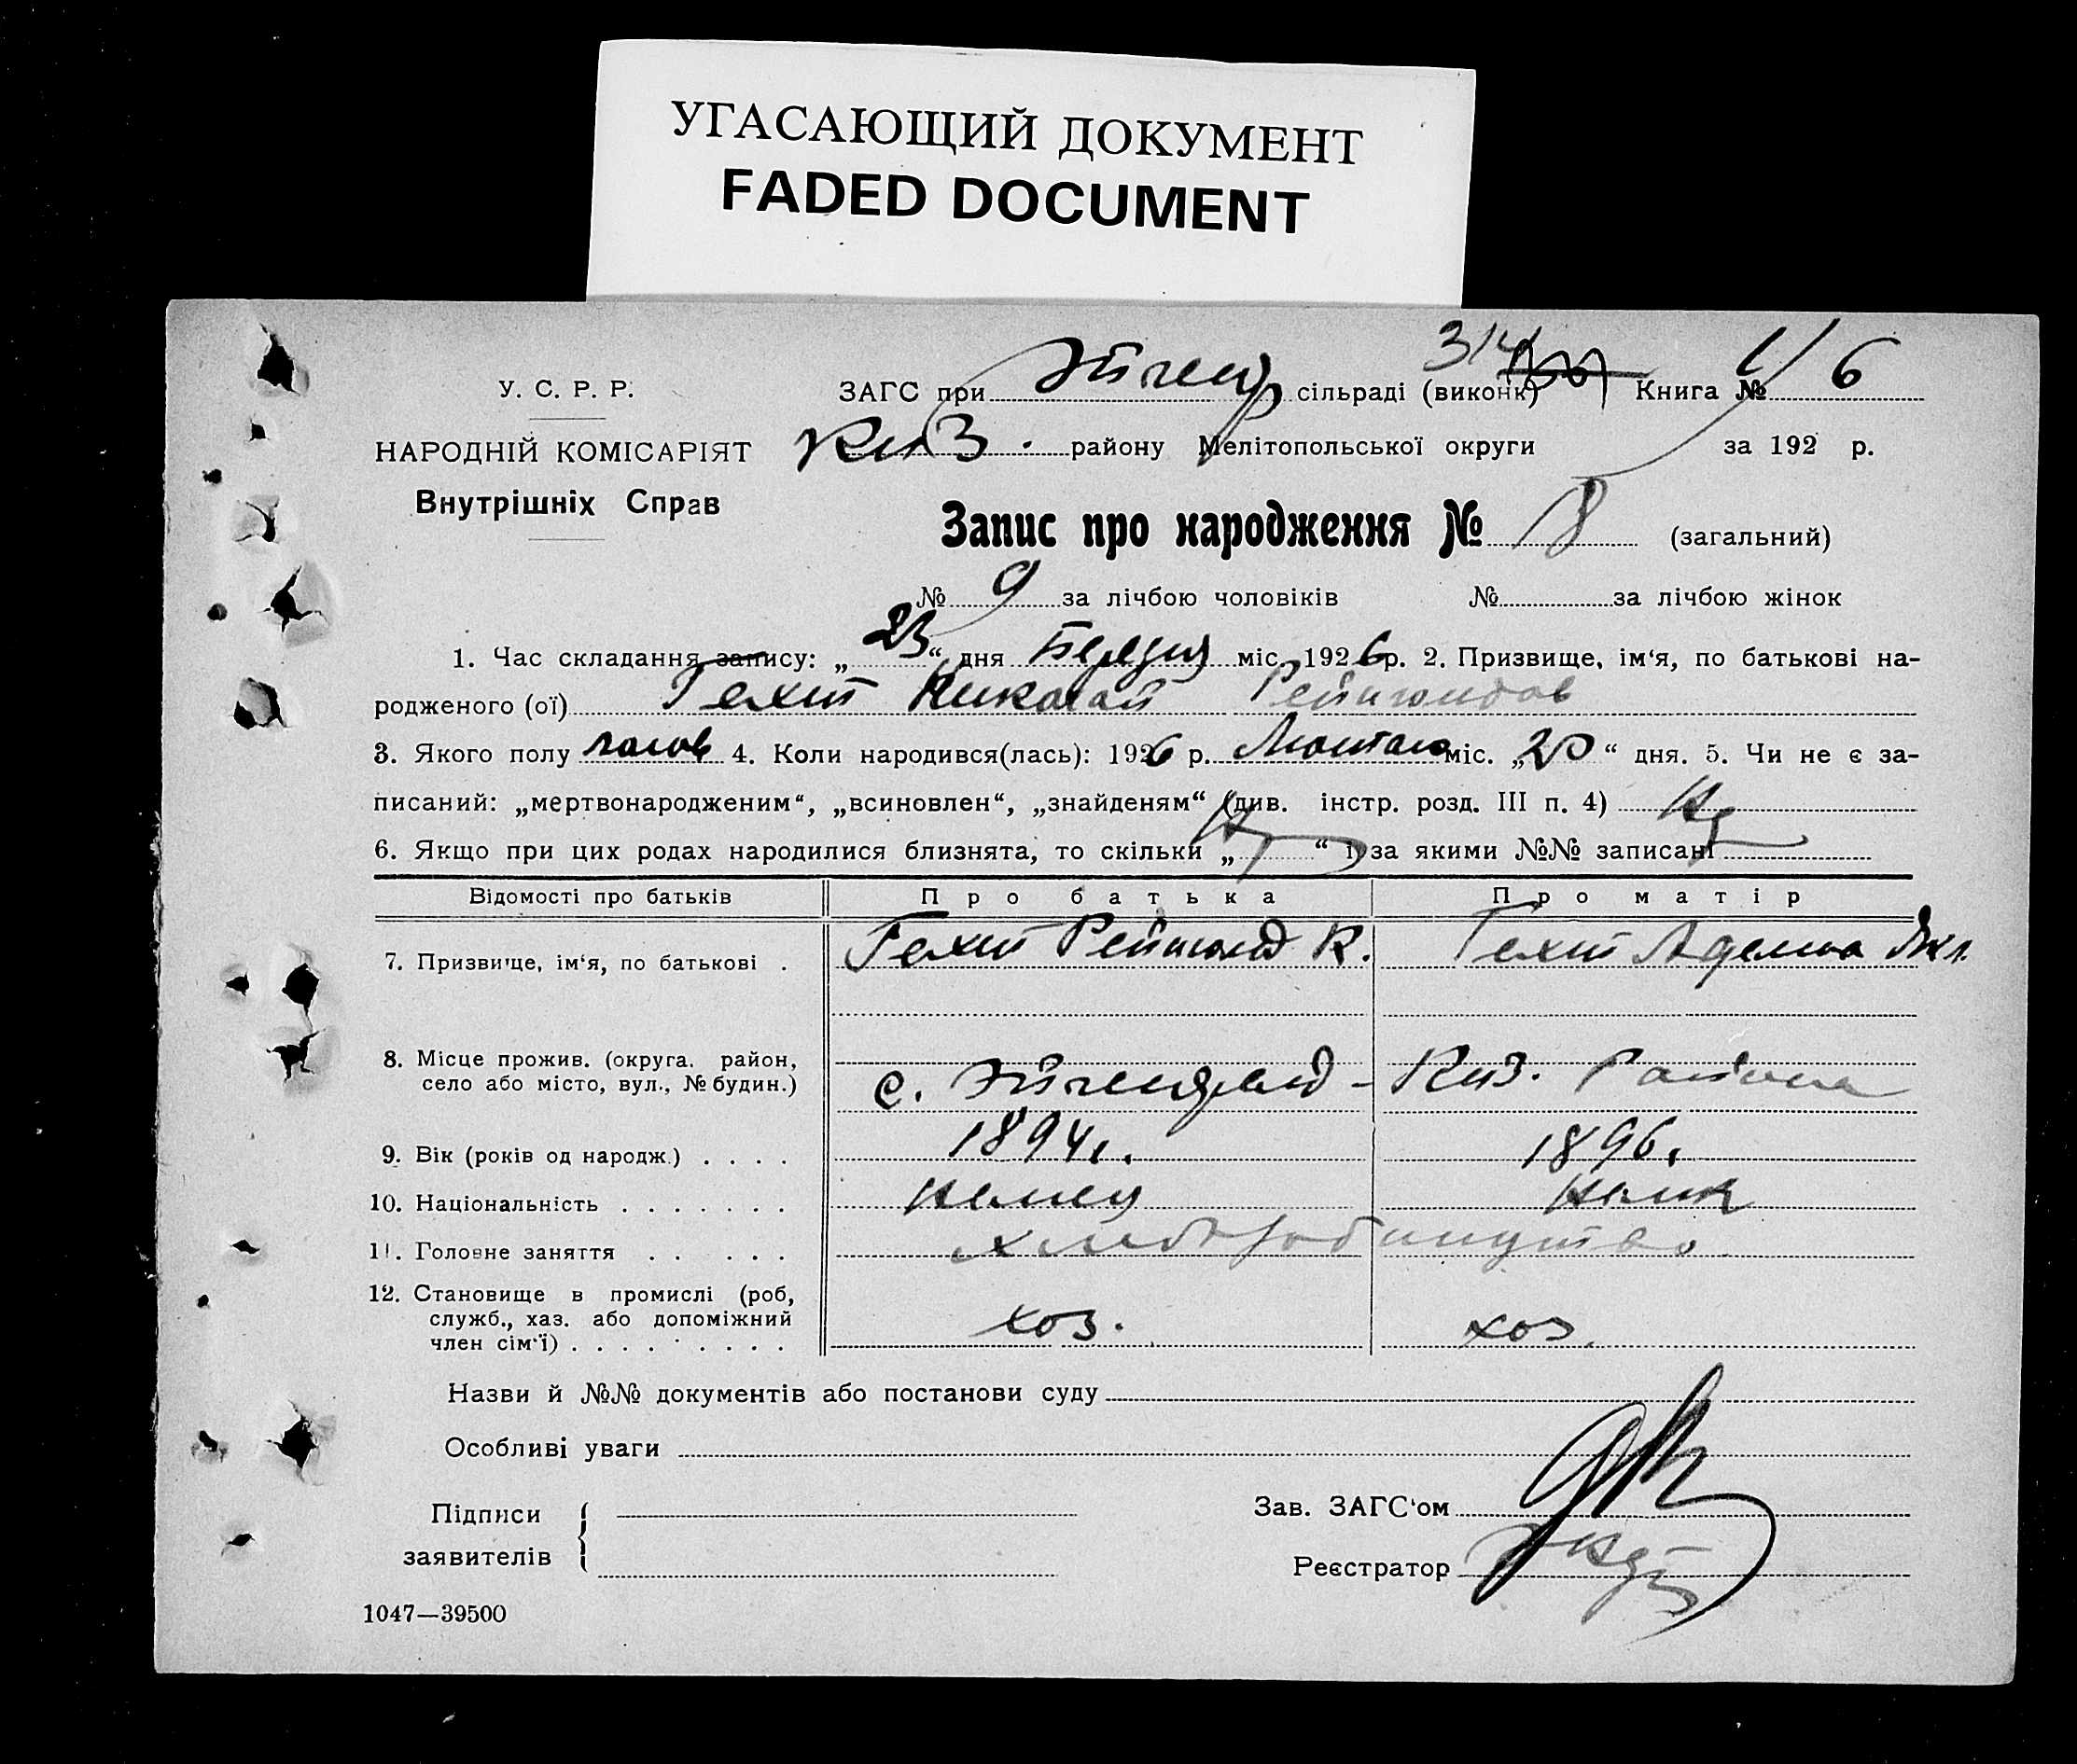 УГАСАЮЩИЙ ДОКУМЕНТ
FADED DOCUMENT
314
У. С. Р. Р.
ЗАГС при Эйгенф сільраді (виконк) Книга № 6
НАРОДНІЙ КОМІСАРІЯТ
Киз. району Мелітопольської округи за 192 р.
Внутрішніх Справ
Запис про народження № 18 (загальний)
№ 9 за лічбою чоловіків № за лічбою жінок
1. Час складання запису: „23“ дня Березня міс. 1926 р. 2. Призвище, ім‘я, по батькові на-
родженого (ої) Гехт Николай Рейнгольдов
3. Якого полу 4. Коли народився(лась): 1926 р. Лютого міс. „20“ дня. 5. Чи не є за-
писаний: „мертвонародженим“, „всиновлен“, „знайденям“ (див. інстр. розд. III п. 4) Ні
6. Якщо при цих родах народилися близнята, то скільки „Ні“ і за якими №№ записані
Відомості про батьків Про батька Про матір
7. Призвище, ім‘я, по батькові . Гехт Рейнгольд К. Гехт Аделина
8. Місце прожив. (округа. район,
село або місто, вул., № будин.) с. Эйгенфельд - Киз. Района
9. Вік (років од народж.) . . . . 1894 г. 1896.
10. Національність . . . . . . . Немец Немк
11. Головне заняття . . . . . хлібробництво
12. Становище в промислі (роб,
служб., хаз. або допоміжний
член сім‘ї) . . . . . . . . . хоз. хоз.
Назви й №№ документів або постанови суду
Особливі уваги
Підписи
заявителів
Зав. ЗАГС‘ом
Реєстратор
1047—39500